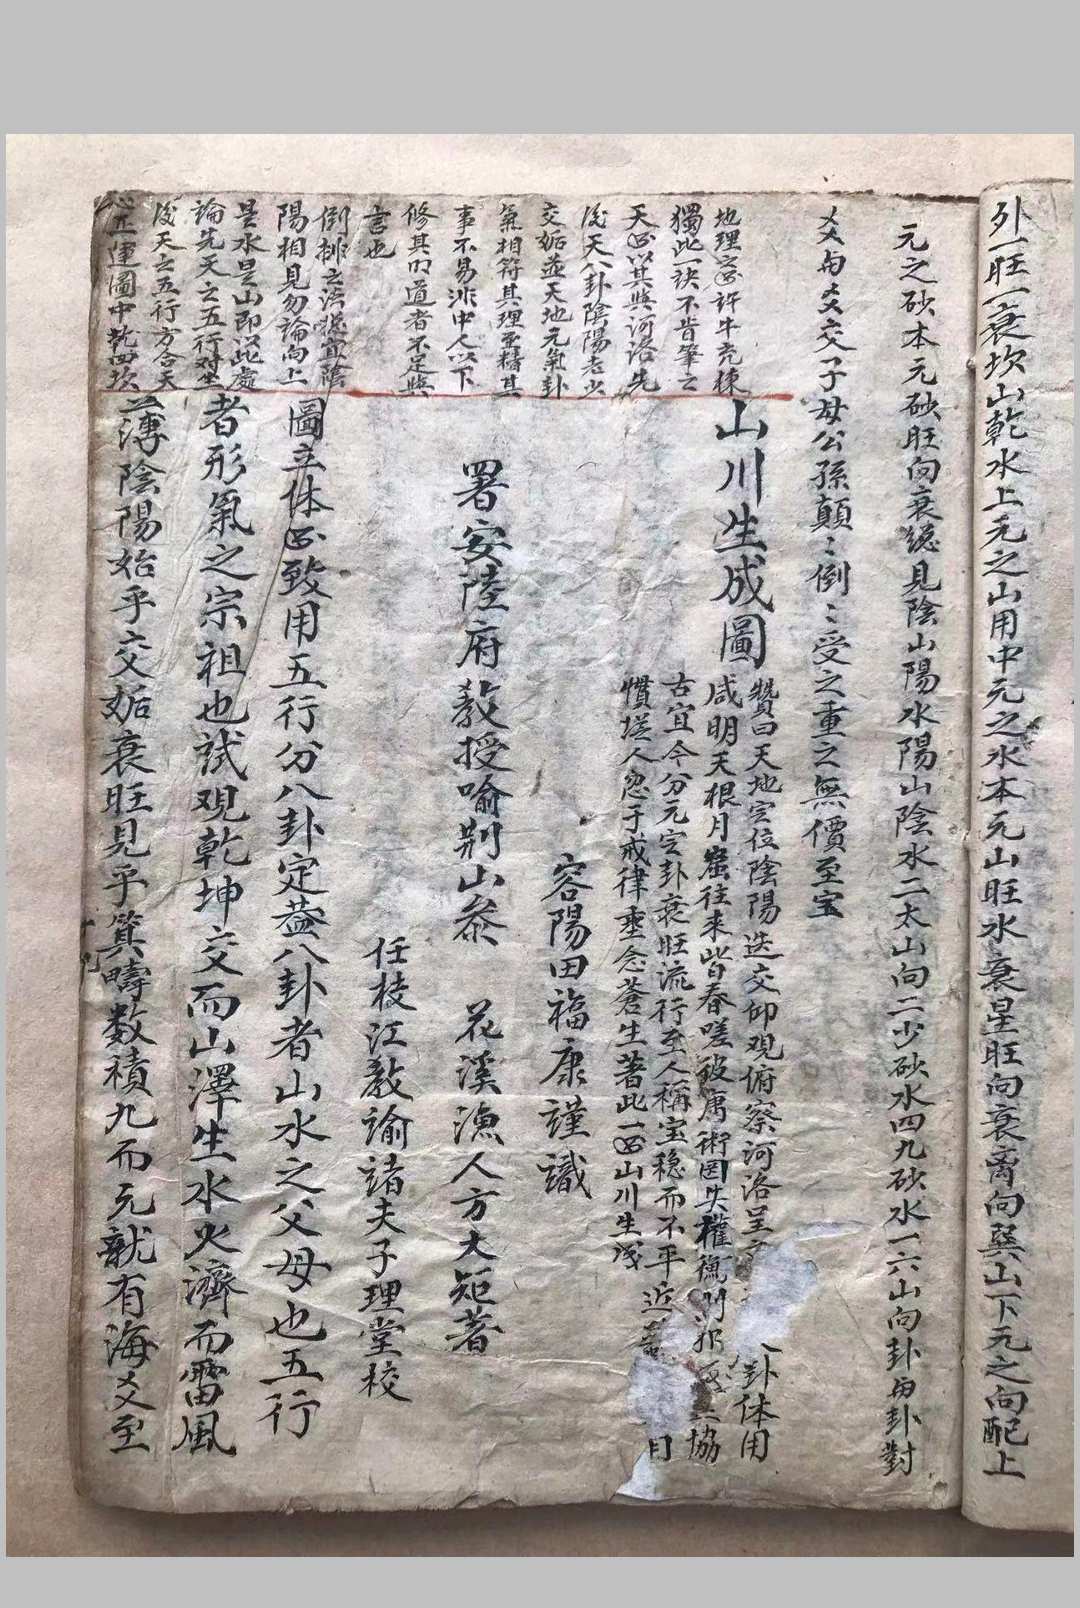 外一旺一衰坎山乾水上元之山用中元之水本元山旺水衰星旺向衰离向巽山下元之向配上
元之砂本元砂旺向衰緫見陰山陽水陽山陰水二太山向二少砂水四九砂水一六山向卦由卦對
爻由爻交子母公孫顛〻倒〻受之重之無價至宝
地理之书許牛充棟
獨此一訣不肯筆之
天书以其與河洛先
后天八卦陰陽老少
交姤並天地元氣卦
氣相符其理至精其
事不易非中人以下
修其明道者不足與
言也
倒排立法緫宜陰
陽相見勿論向上
星水星山即以此處
論先天之五行对坐
后天之五行方合天
心正運圖中乾四坎
山川生成圖
贊曰天地定位陰陽迭交仰观俯察河洛呈
一卦体用
咸明天根月窟往来皆春嗟彼庸術因失權衡
協
古宜今分元定卦衰旺流行至人稱宝稳而不平近
日
慣送人忽于戒律垂念蒼生著此一书山川生成
容陽田福康謹識
署安陸府教授喻荆山叅
花溪漁人方大矩著
任枝江教諭諸夫子理堂校
圖立体以致用五行分八卦定葢八卦者山水之父母也五行
者形氣之宗祖也試观乾坤交而山澤生水火濟而雷風
薄陰陽始乎交姤衰旺見乎箕疇数積九而元就有海爻至